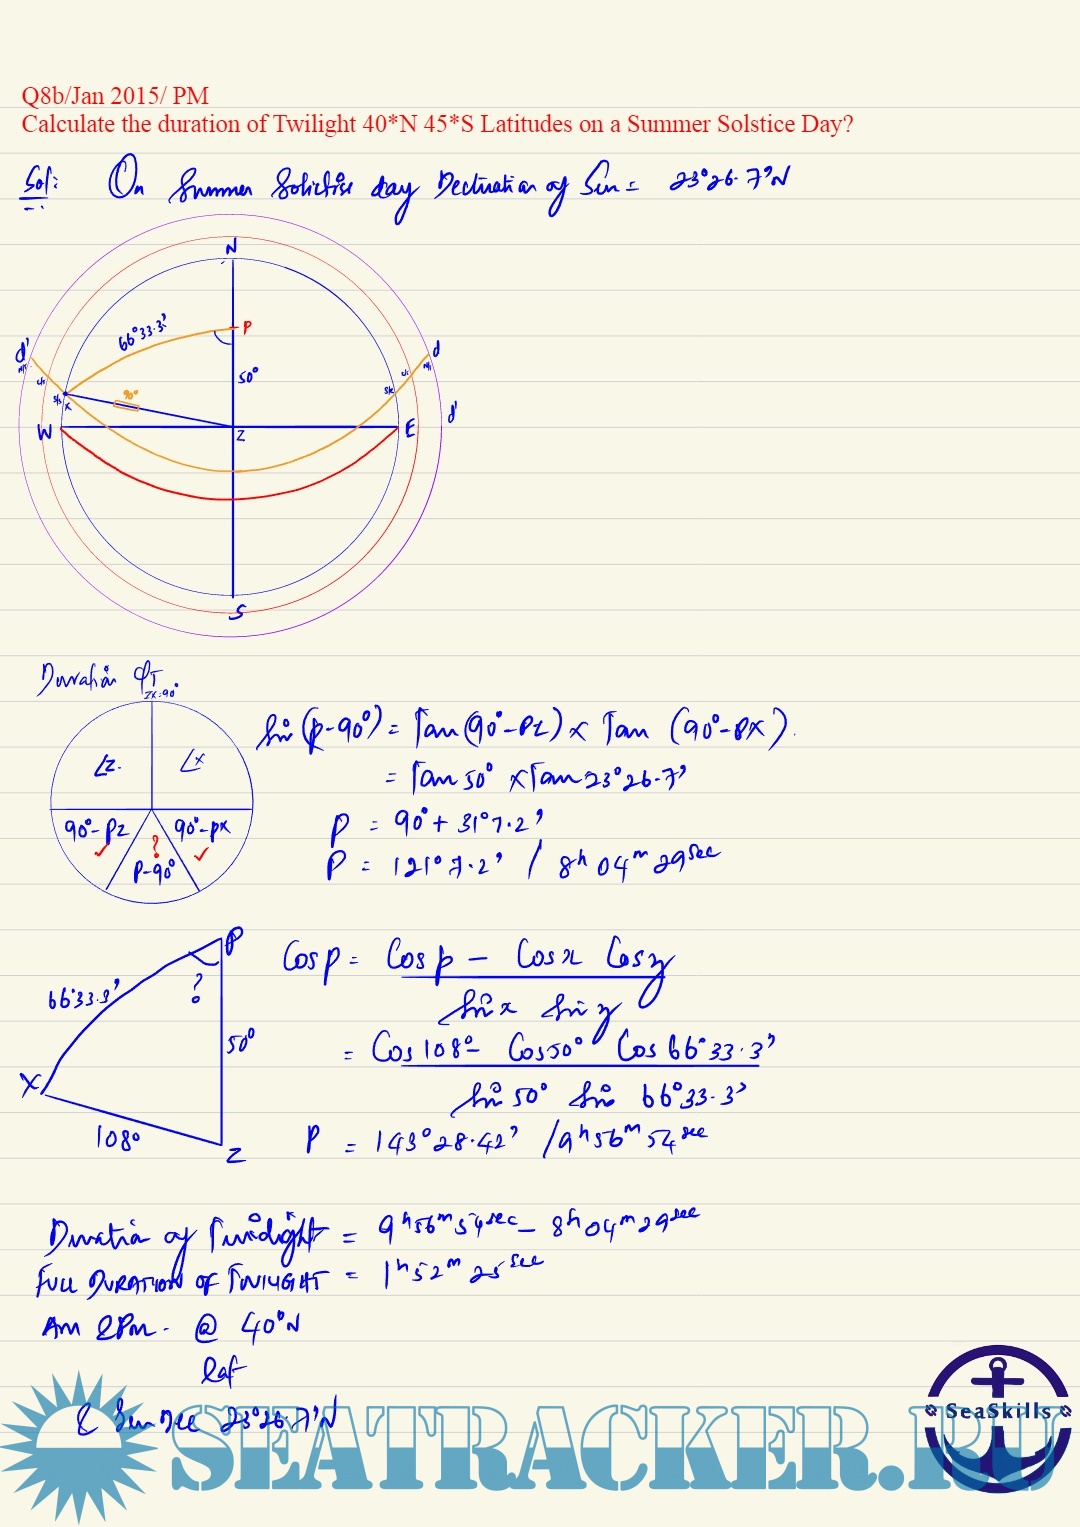 Q8b/Jan 2015/ PM
Calculate the duration of Twilight 40*N 45*S Latitudes on a Summer Solstice Day?
Sol: On Summer Solictise day Declination of Sun = 23°26.7'N
N
P
66°33.3'
d'
d
50°
90°
X
W
Z
E
d'
S
Duration of T
ZX=90°
∠Z.
∠X
90°-PZ
?
90°-PX
P-90°
Sin (p-90°) = Tan (90°-PZ) x Tan (90°-PX).
= Tan 50° x Tan 23°26.7'
P = 90° + 31°7.2'
P = 121°7.2' / 8h 04m 29sec
P
66°33.3'
?
50°
X
108°
Z
Cos P = Cos p - Cos x Cos z
Sin x Sin z
= Cos 108° - Cos 50° Cos 66°33.3'
Sin 50° Sin 66°33.3'
P = 143°28.42' / 9h 56m 54sec
Duration of Twilight = 9h 56m 54sec - 8h 04m 29sec
FULL DURATION OF TWILIGHT = 1h 52m 25sec
AM & PM - @ 40°N
lat
& Sun Dec 23°26.7'N
SeaSkills
SEATRACKER.RU